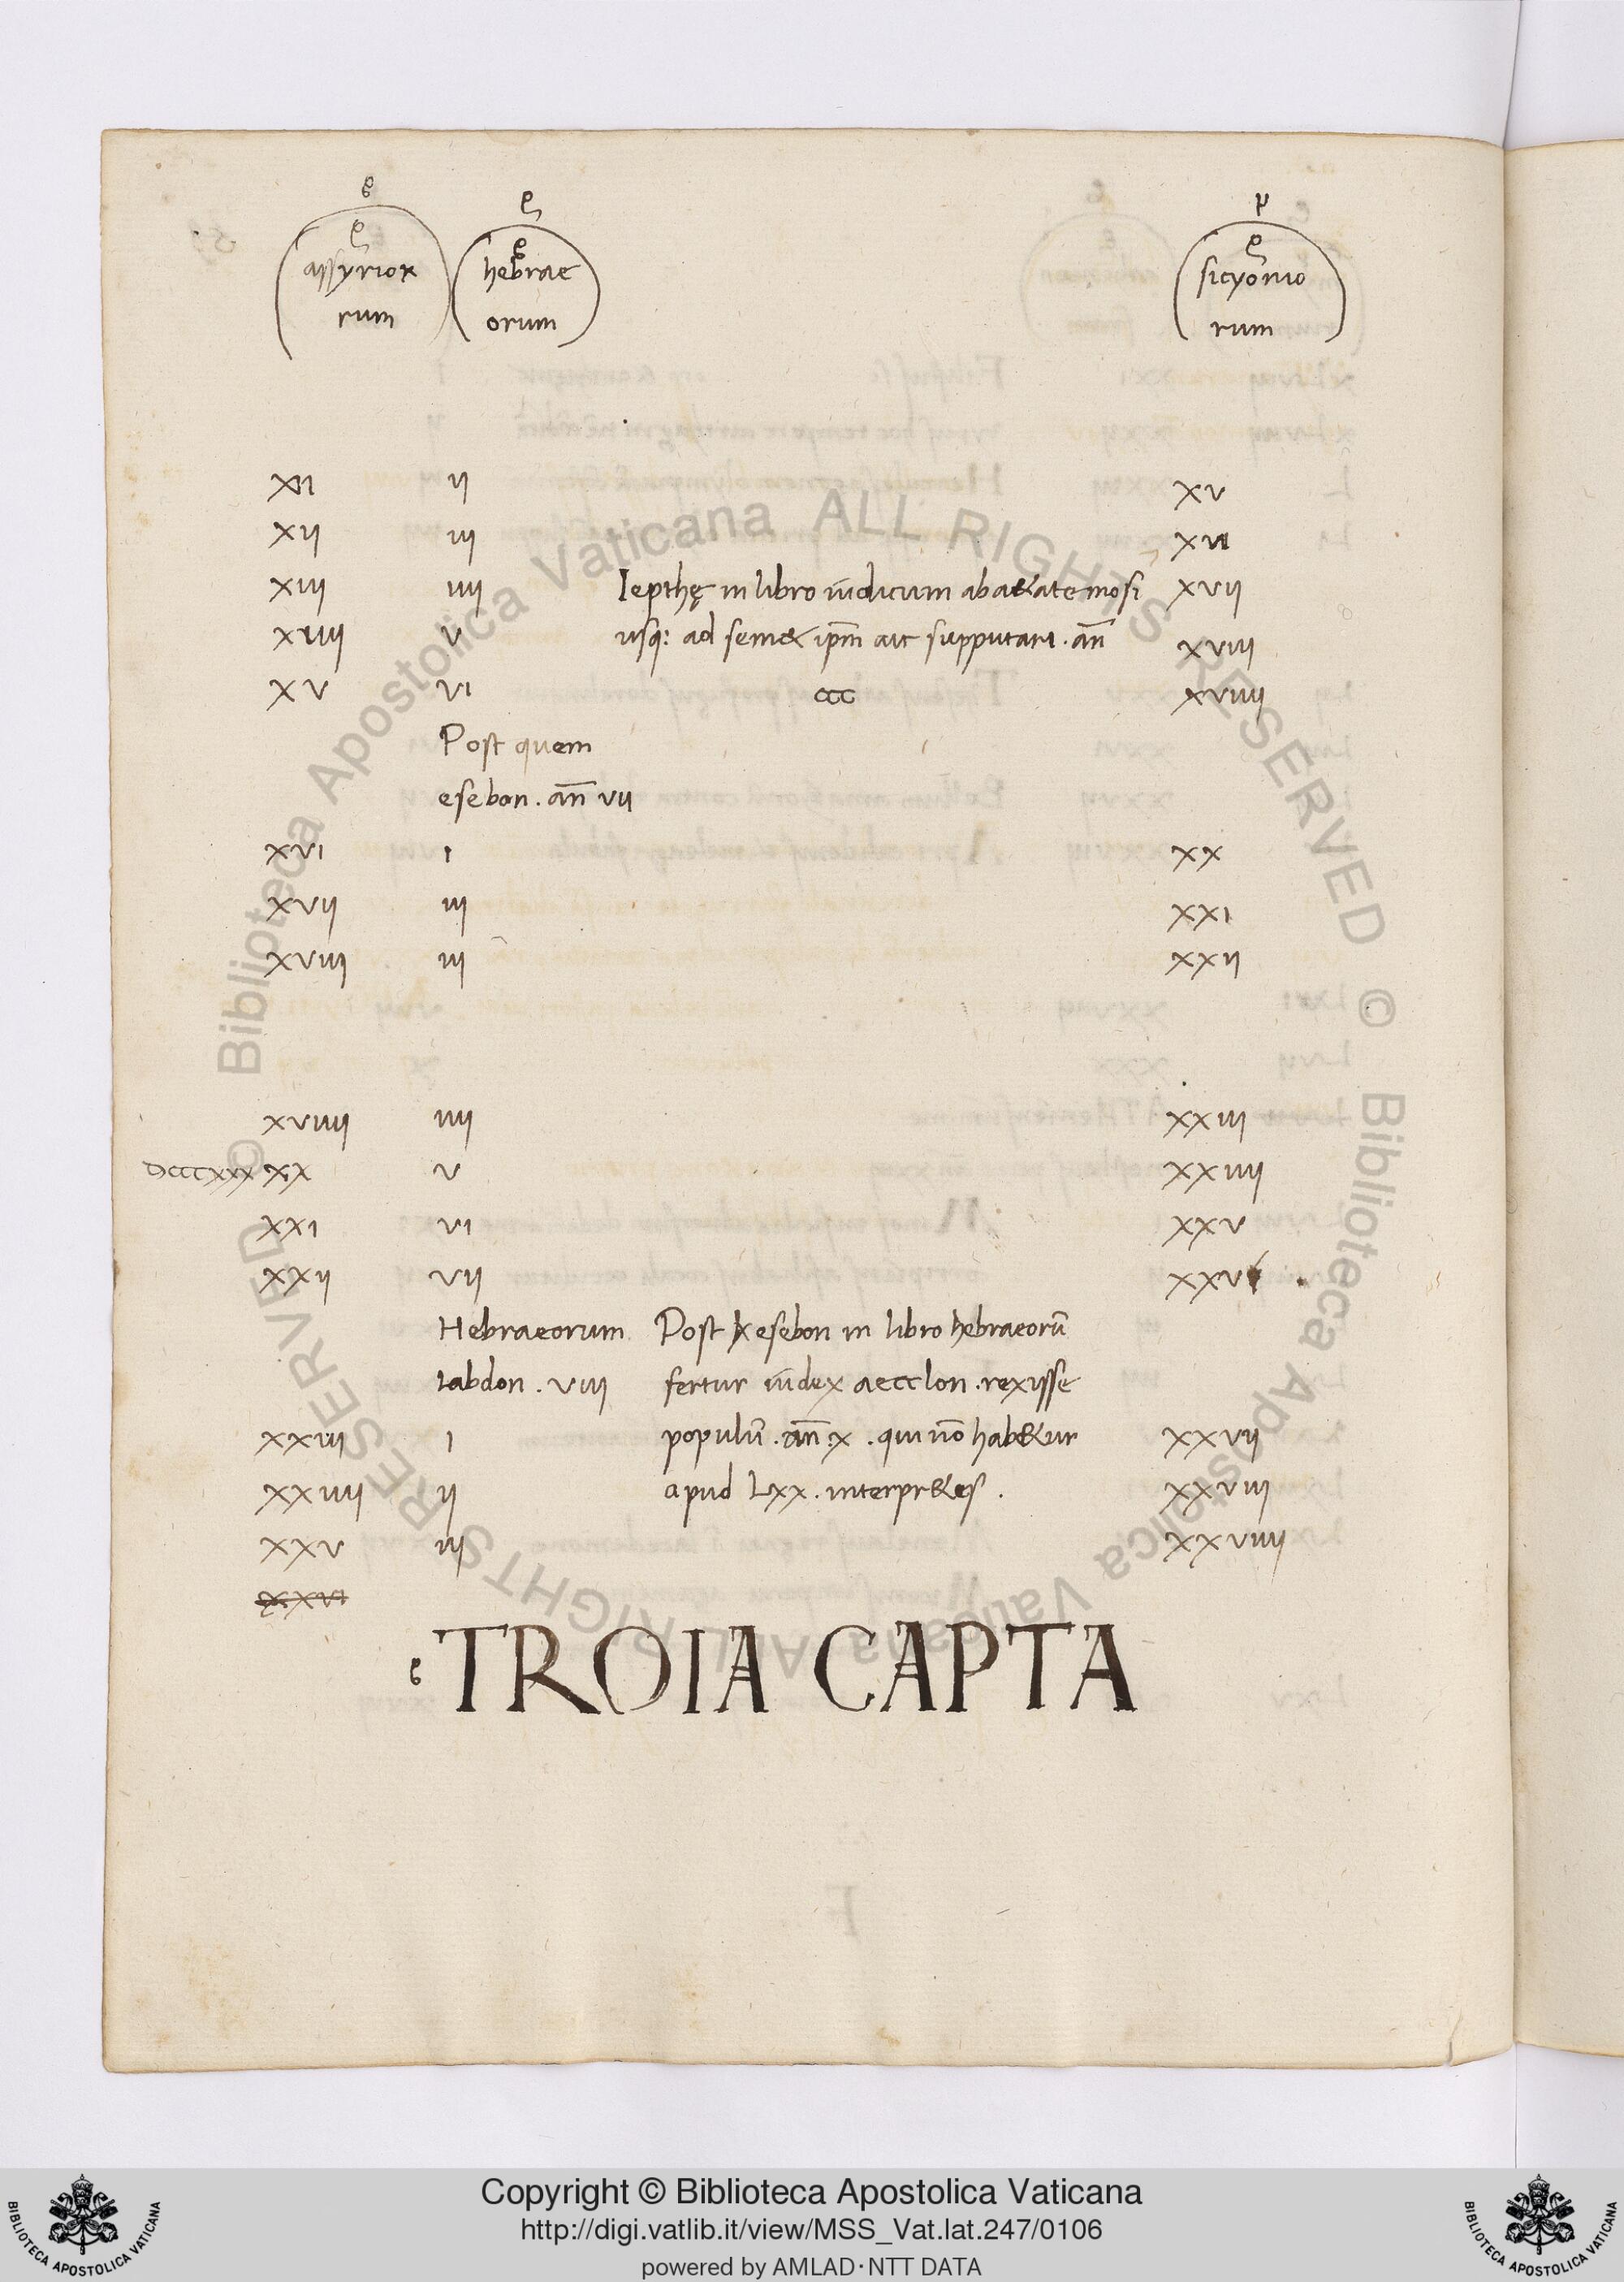 assyrior
rum
hebrae
orum
sicyonio
rum
XI II XV
XII III XVI
XIII IIII Iepthę in libro iudicum ab a&ate mosi XVII
XIIII V usq: ad sem& ip̄m ait supputari . an̄ XVIII
XV VI ccc XVIIII
Post quem
esebon . an̄ VII
XVI I XX
XVII III XXI
XVIII III XXII
XVIIII IIII XXIII
DCCCXXX XX V XXIIII
XXI VI XXV
XXII VII XXVI
Hebraeorum Post esebon in libro hebraeorū
labdon . VIII fertur iudex aecclon . rexisse
XXIII I populū . an̄ . X . qui nō hab&ur XXVII
XXIIII II apud LXX . interpr&es . XXVIII
XXV III XXVIIII
XXVI
TROIA CAPTA
© Biblioteca Apostolica Vaticana ALL RIGHTS RESERVED © Biblioteca Apostolica Vaticana ALL RIGHTS RESERVED
Copyright © Biblioteca Apostolica Vaticana
http://digi.vatlib.it/view/MSS_Vat.lat.247/0106
powered by AMLAD·NTT DATA
BIBLIOTECA APOSTOLICA VATICANA
BIBLIOTECA APOSTOLICA VATICANA